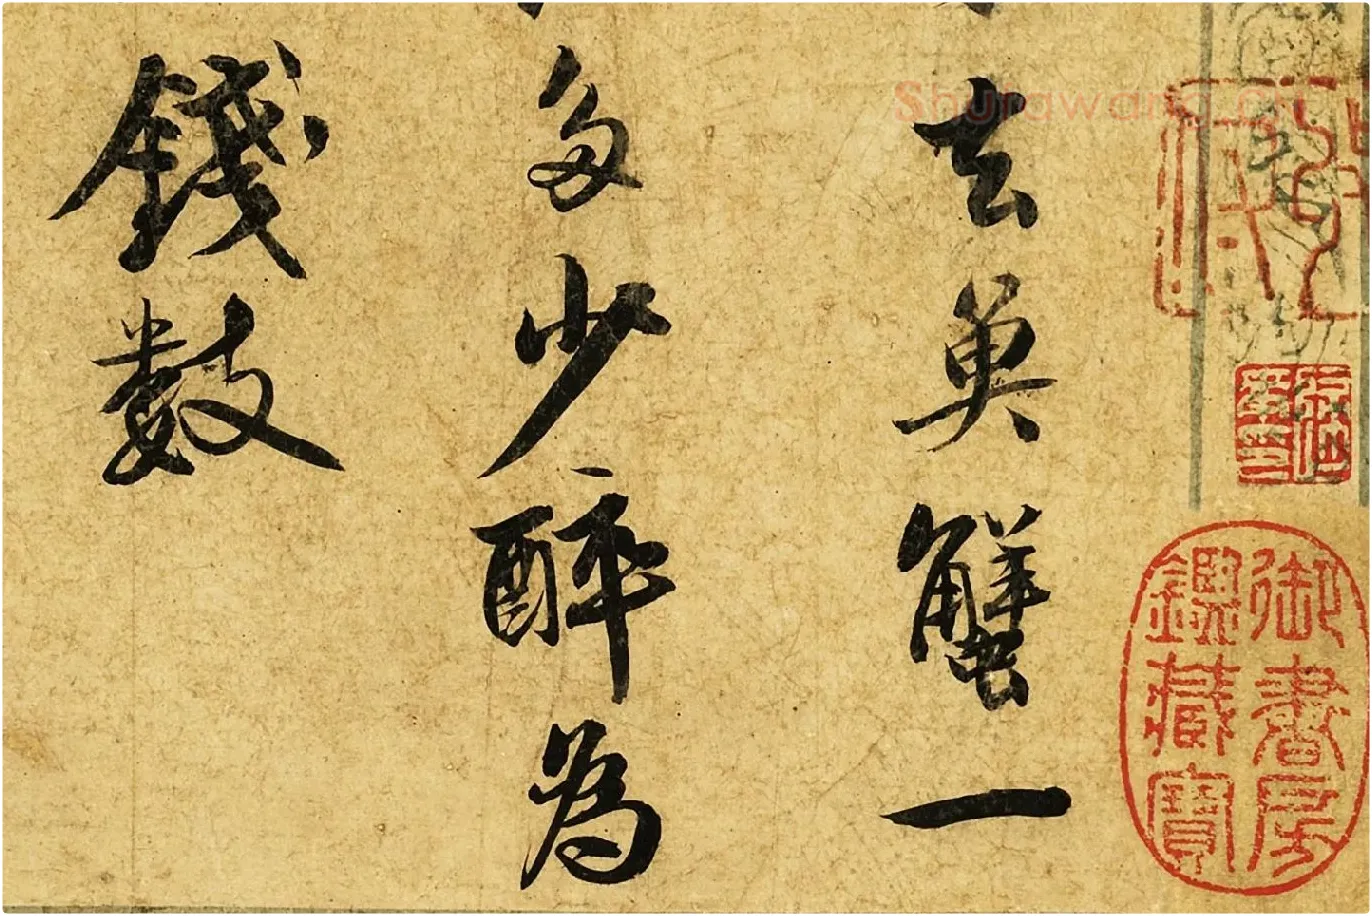 去魚蟹一
多少醉為
錢數
御書房
鑑藏寶